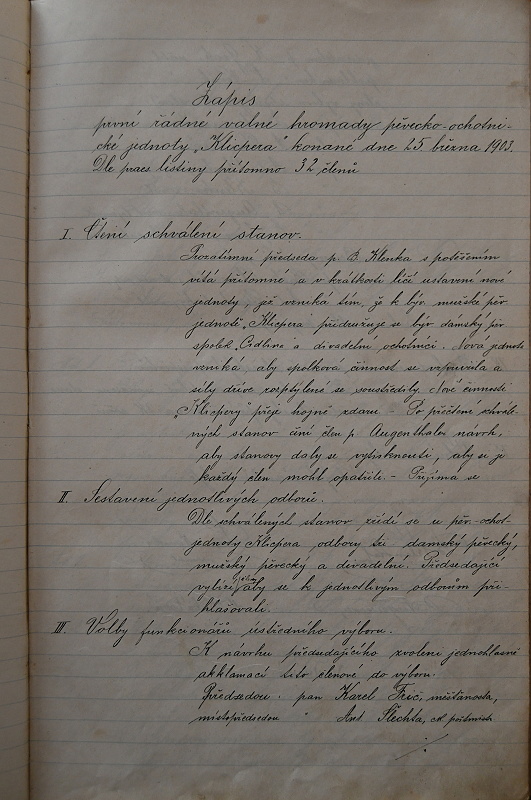 Zápis
první řádné valné hromady pěvecko-ochotni-
cké jednoty „Klicpera" konané dne 25. března 1903.
Dle praes listiny přítomno 32 členů
I. Čtení schválení stanov.
Prozatímní předseda p. B. Klenka s potěšením
vítá přítomné a v krátkosti líčí ustavení nové
jednoty, jež vzniká tím, že k býv. mužské pěv.
jednotě „Klicpera" přidružuje se býv. dámský pěv.
spolek „Cidlina" a divadelní ochotníci. Nová jednota
vzniká aby spolková činnost se vzpružila a
síly dříve rozptýlené se soustředily. Nové činnosti
„Klicpery" přeje hojně zdaru. - Po přečtení schvále-
ných stanov činí člen p. Augenthaler návrh,
aby stanovy daly se vytisknouti, aby se je
každý člen mohl opatřiti. - Přijímá se
II. Sestavení jednotlivých odborů.
Dle schválených stanov zřídí se u pěv. ochot.
jednoty Klicpera odbory tři damský pěvecký,
mužský pěvecký a divadelní. Předsedající
vybízí aby se k jednotlivým odborům při-
hlašovali.
III. Volby funkcionářů ústředního výboru.
K návrhu předsedajícího zvoleni jednohlasně
akklamací tito členové do výboru:
Předsedou: pan Karel Fric, měšťanosta,
místopředsedou " Ant. Šlechta, ck poštmistr
./.